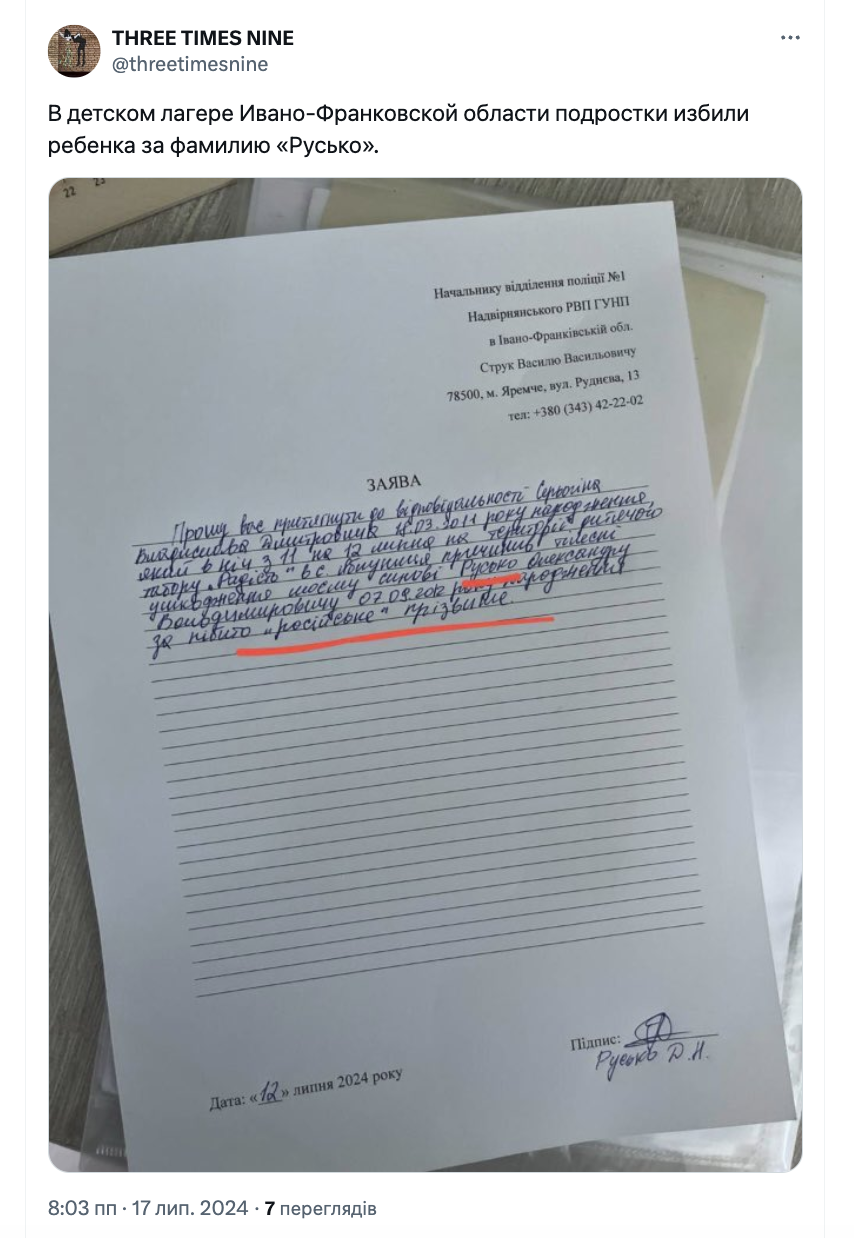 THREE TIMES NINE
@threetimesnine
В детском лагере Ивано-Франковской области подростки избили
ребенка за фамилию «Русько».
22 23
Начальнику відділення поліції №1
Надвірнянського РВП ГУНП
в Івано-Франківській обл.
Струк Василю Васильовичу
78500, м. Яремче, вул. Руднєва, 13
тел: +380 (343) 42-22-02
ЗАЯВА
Прошу вас притягнути до відповідальності Серьогіна
Владислава Дмитровича 18.03.2011 року народження,
який в ніч з 11 на 12 липня на території дитячого
табору „Радість" в с. спричинив тілесні
ушкодження моєму синові Русько Олександру
Володимировичу 07.09.2012 року народження
за нібито „російське" прізвище.
Підпис:
Русько Д.Н.
Дата: «12» липня 2024 року
8:03 пп · 17 лип. 2024 · 7 переглядів